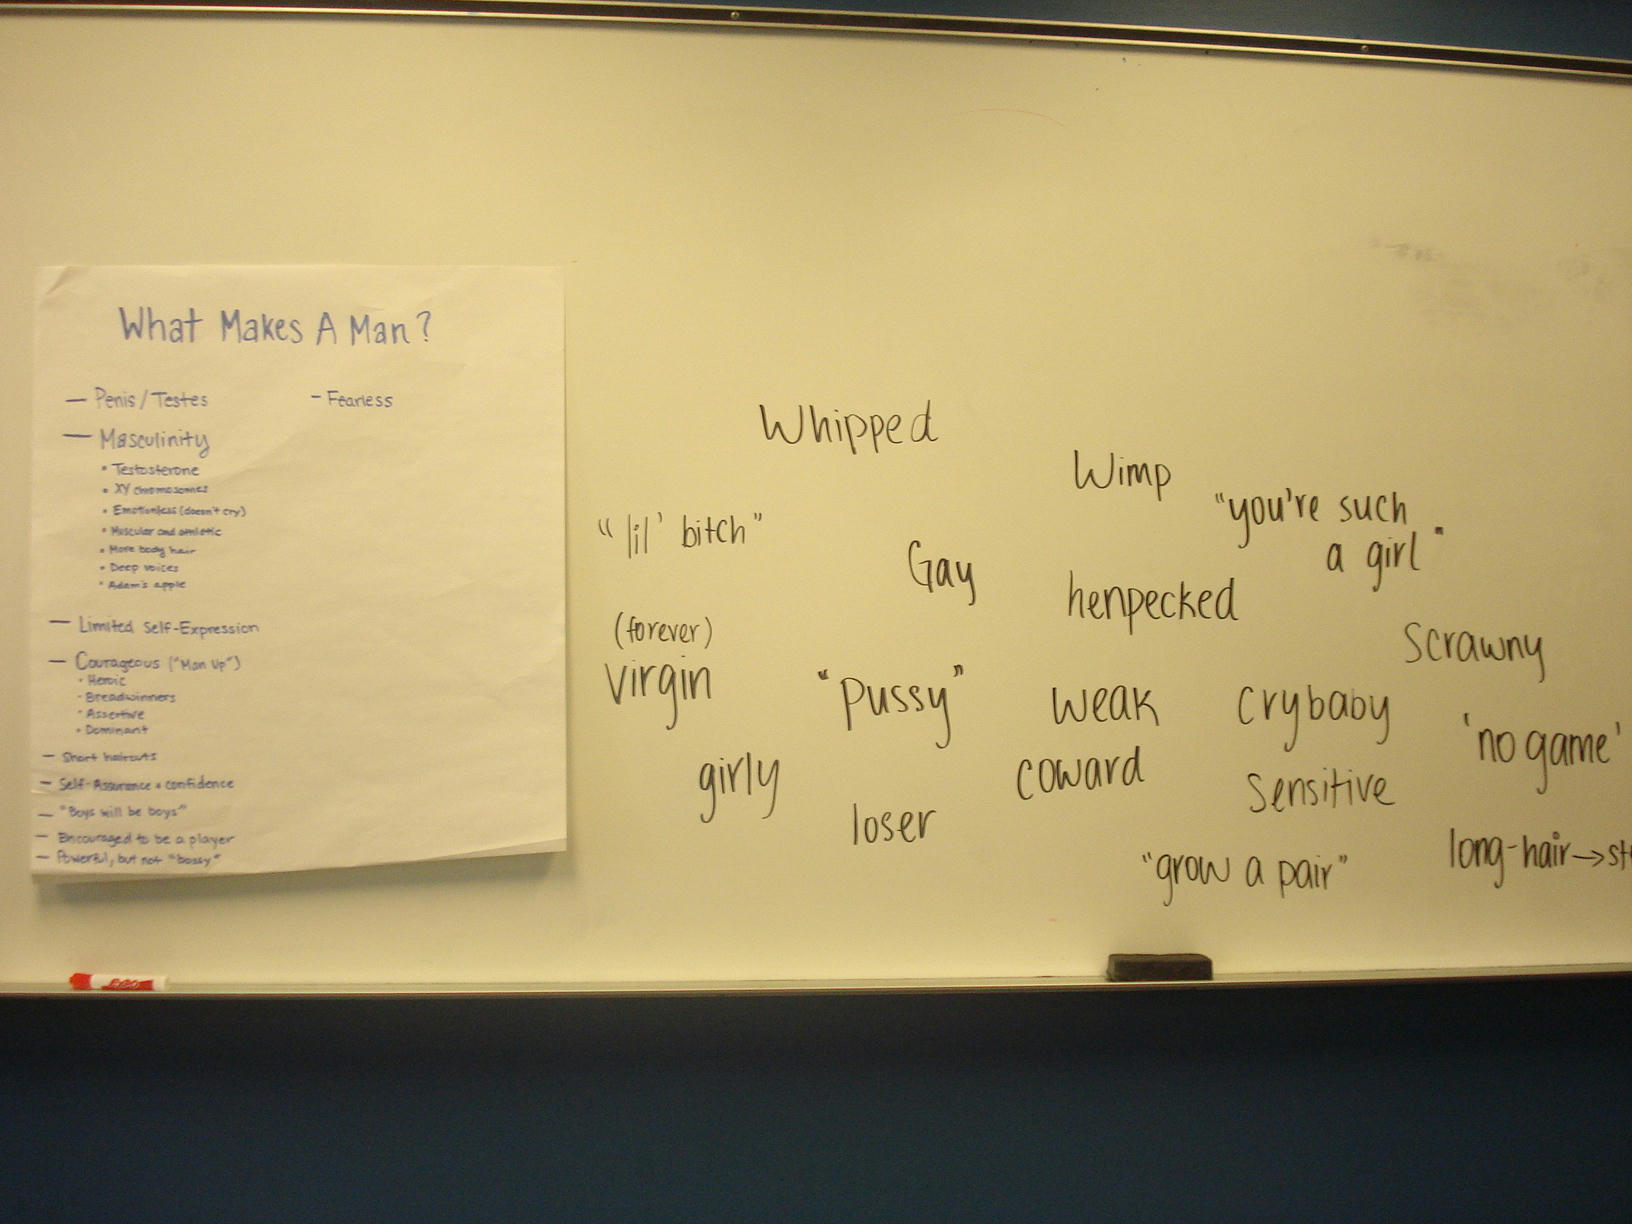 What Makes A Man?
— Penis/Testes
- Fearless
— Masculinity
• Testosterone
• XY chromosomes
• Emotionless (doesn't cry)
• Muscular and athletic
• More body hair
• Deep voices
• Adam's apple
— Limited Self-Expression
— Courageous ("Man Up")
• Heroic
• Breadwinners
• Assertive
• Dominant
— Short haircuts
— Self-Assurance + confidence
— "Boys will be boys"
— Encouraged to be a player
— Powerful, but not "bossy"
Whipped
Wimp
"you're such
a girl"
"lil' bitch"
Gay
henpecked
(forever)
virgin
Scrawny
"pussy"
weak
crybaby
'no game'
girly
coward
sensitive
loser
"grow a pair"
long-hair→
EXPO